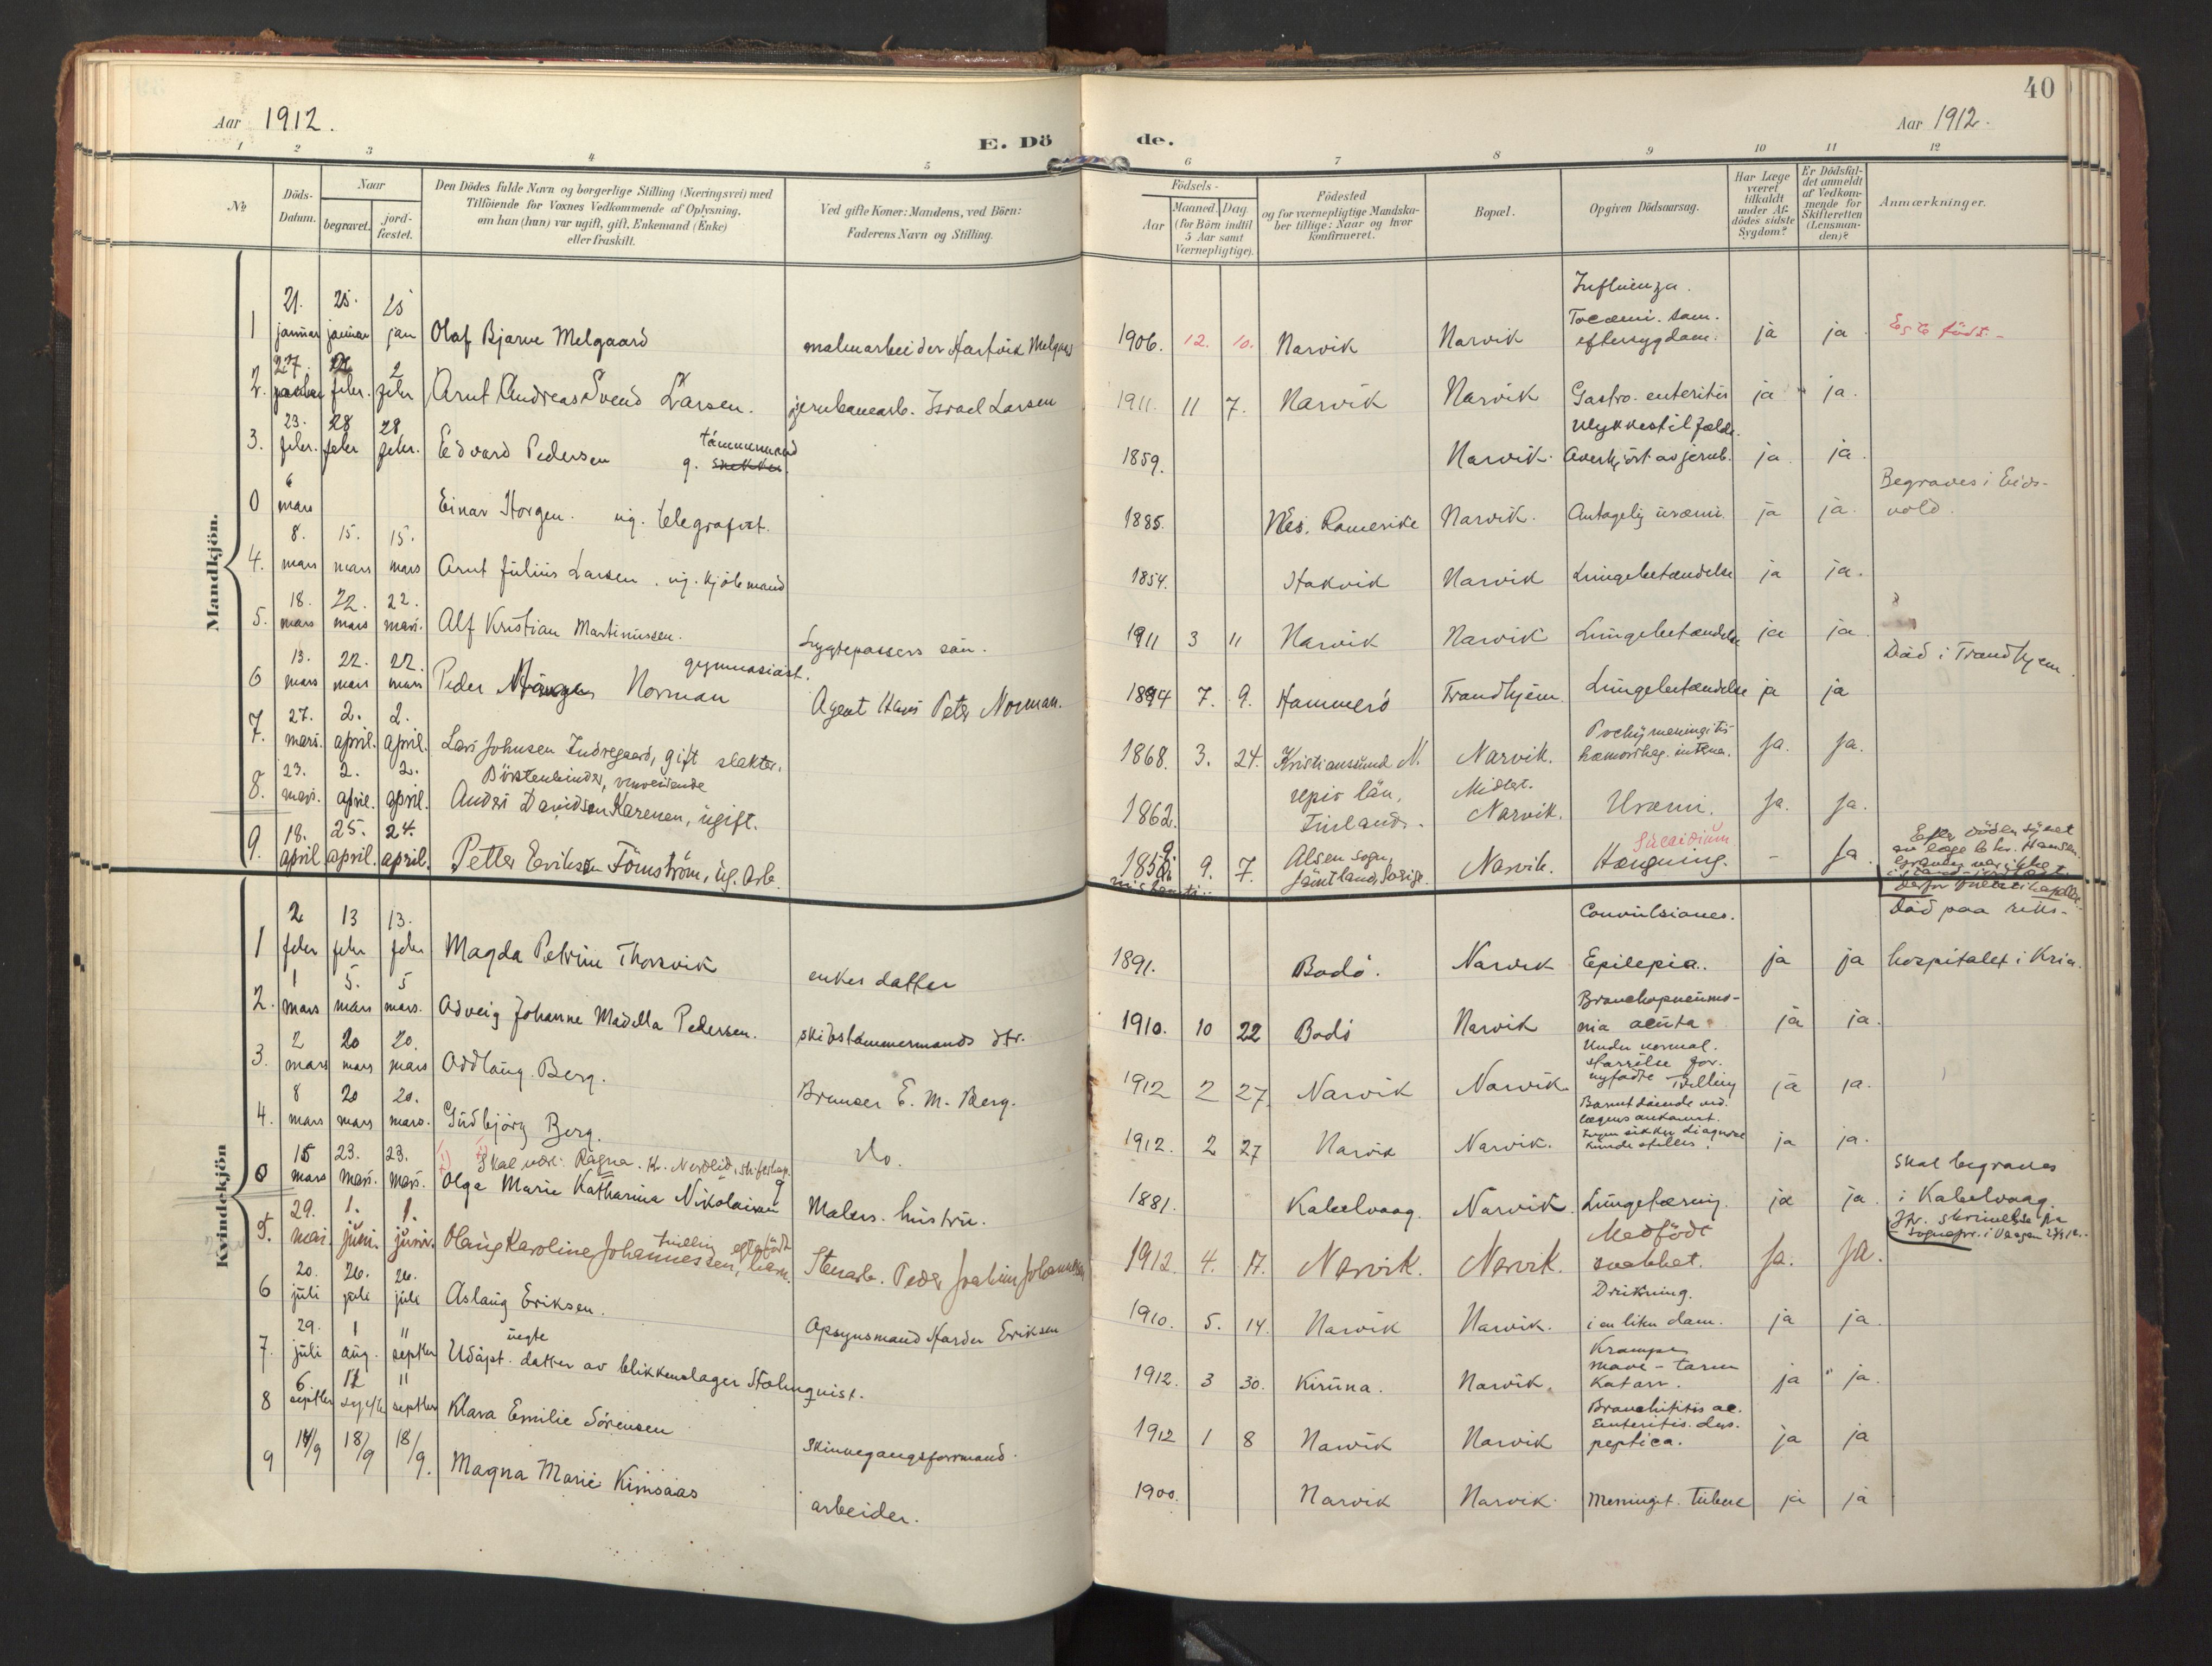 Aar 1912.
E. Dö
de.
40
Aar 1912.
1 2 3 4 5 6 7 8 9 10 11 12
№
Döds-
Datum.
Naar
begravet.
jord-
fæstet.
Den Dödes fulde Navn og borgerlige Stilling (Næringsvei) med
Tilföiende for Voxnes Vedkommende af Oplysning,
om han (hun) var ugift, gift, Enkemand (Enke)
eller fraskilt.
Ved gifte Koner: Mandens, ved Börn:
Faderens Navn og Stilling.
Födsels-
Aar
Maaned. Dag.
(for Börn indtil
5 Aar samt
Værnepligtige).
Födested
og for værnepligtige Mandska-
ber tillige: Naar og hvor
konfirmeret.
Bopæl.
Opgiven Dödsaarsag.
Har Læge
været
tilkaldt
under Af-
dödes sidste
Sygdom?
Er Dödsfal-
det anmeldt
af Vedkom-
mende for
Skifteretten
(Lensman-
den)?
Anmærkninger.
Mandkjön.
1 21. januar 25. januar 25 jan Olaf Bjarne Melgaard malmarbeider Hartvik Melgaard 1906. 12. 10. Narvik Narvik Influenza. som eftersygdom. ja ja. Egte födt.
2. 27. 2 febr Arnt Andreas Svend Larsen. jernbanearb. Israel Larsen 1911. 11 7. Narvik Narvik Gastro-enteritis ja ja.
3. 23. febr. 28 febr 28. febr. Edvard Pedersen g. tömmermand 1859. Narvik. Ulykkestilfælde. Overkjört av jernb. ja ja.
0 6 mars Einar Horgen. ug. telegrafist. 1885. Nes. Romerike Narvik. Antagelig uræmi. ja ja. Begraves i Eids-
vold.
4. 8. mars 15. mars 15. mars Arnt Julius Larsen. ug. kjöbmand 1854. Hakvik Narvik Lungebetændelse ja ja.
5. 18. mars 22. mars 22. mars. Alf Kristian Martinussen. Lygtepassers sön. 1911 3 11 Narvik Narvik Lungebetændelse ja ja
6 13. mars 22. mars 22. mars Peder Norman gymnasiast. Agent Hans Peter Norman. 1894 7. 9. Hammerö Trondhjem. Lungebetændelse ja ja Död i Trondhjem.
7. 27. mars. 2. april. 2. april. Lars Johnsen Indregaard, gift slakter. 1868. 3. 24. Kristianssund N. Narvik. Pachymeningitis hæmorrhag. interna. Ja. Ja.
8. 23. mars. 2. april. 2. april. Börstenbinder, omreisende
Anders Davidsen Karenen, ugift. 1862. län, Finland. Midlert. Narvik. Uræmi. Ja. Ja.
9. 18. april 25. april. 24. april. Petter Erikson Fömström, ug. Arb. 9. 7. Alsen sogn, Jämtland, Sverige Narvik. Suicidium Hængning. - Ja. Efter döden synet
av læge Hansen.
Kvindekjön
1 2 febr 13 febr 13. febr Magda Petrine Thorsvik enkes datter 1891. Bodö. Narvik Convulsiones. Epilepia. ja ja Död paa riks-
hospitalet i Kria.
2. 1 mars 5. mars 5 mars. Odveig Johanne Madella Pedersen. skibstömmermands dtr. 1910. 10 22 Bodö Narvik Bronchopneumo-
nia acuta ja ja.
3. 2 mars 20 mars 20. mars Oddlaug Berg. Brunser E. M. Berg. 1912 2 27. Narvik Narvik Under normal.
störrelse for.
nyfödte Tvilling ja ja.
4. 8 mars 20 mars 20. mars. Gudbjörg Berg. do. 1912. 2 27 Narvik Narvik. Barnet döende ved
lægens ankomst.
Ingen sikker diagnose
kunde stilles. ja ja.
0 15 mars 23. mars. 23. mars. Skal være: Ragna. K. Nordlid,
Olga Marie Katharina Nikolaisen Malers. hustru. 1881. Kabelvaag. Narvik. Lungetæring. ja ja. Skal begraves
i Kabelvaag.
5. 29. mai. 1. juni. 1. juni. tvilling egtefödt
Olaug Karoline Johannessen, barn. Stenarb. Peder Joakim Johannessen 1912. 4. 17. Narvik. Narvik. Medfödt
svakhet. Ja. Ja.
6 20. juli 26. juli 26. juli Aslaug Eriksen. Opsynsmand Harder Eriksen 1910. 5. 14. Narvik Narvik. Drukning.
i en liten dam. ja ja.
7. 29. juli 1 aug. 11 septbr uegte
Udöpt. datter av blikkenslager Stolmquist. 1912. 3 30. Kiruna. Narvik. Kramper
mave-tarm
katarr. ja ja.
8 6. septbr 11 septbr Klara Emilie Sörensen Skinnegangsformand. 1912 1 8 Narvik Narvik Bronchititis ac.
Enteritis. dys-
peptica. ja ja
9 14/9 18/9 18/9. Magna Marie Kimsaas arbeider. 1900. Narvik Narvik. Meninget. tuberc ja ja